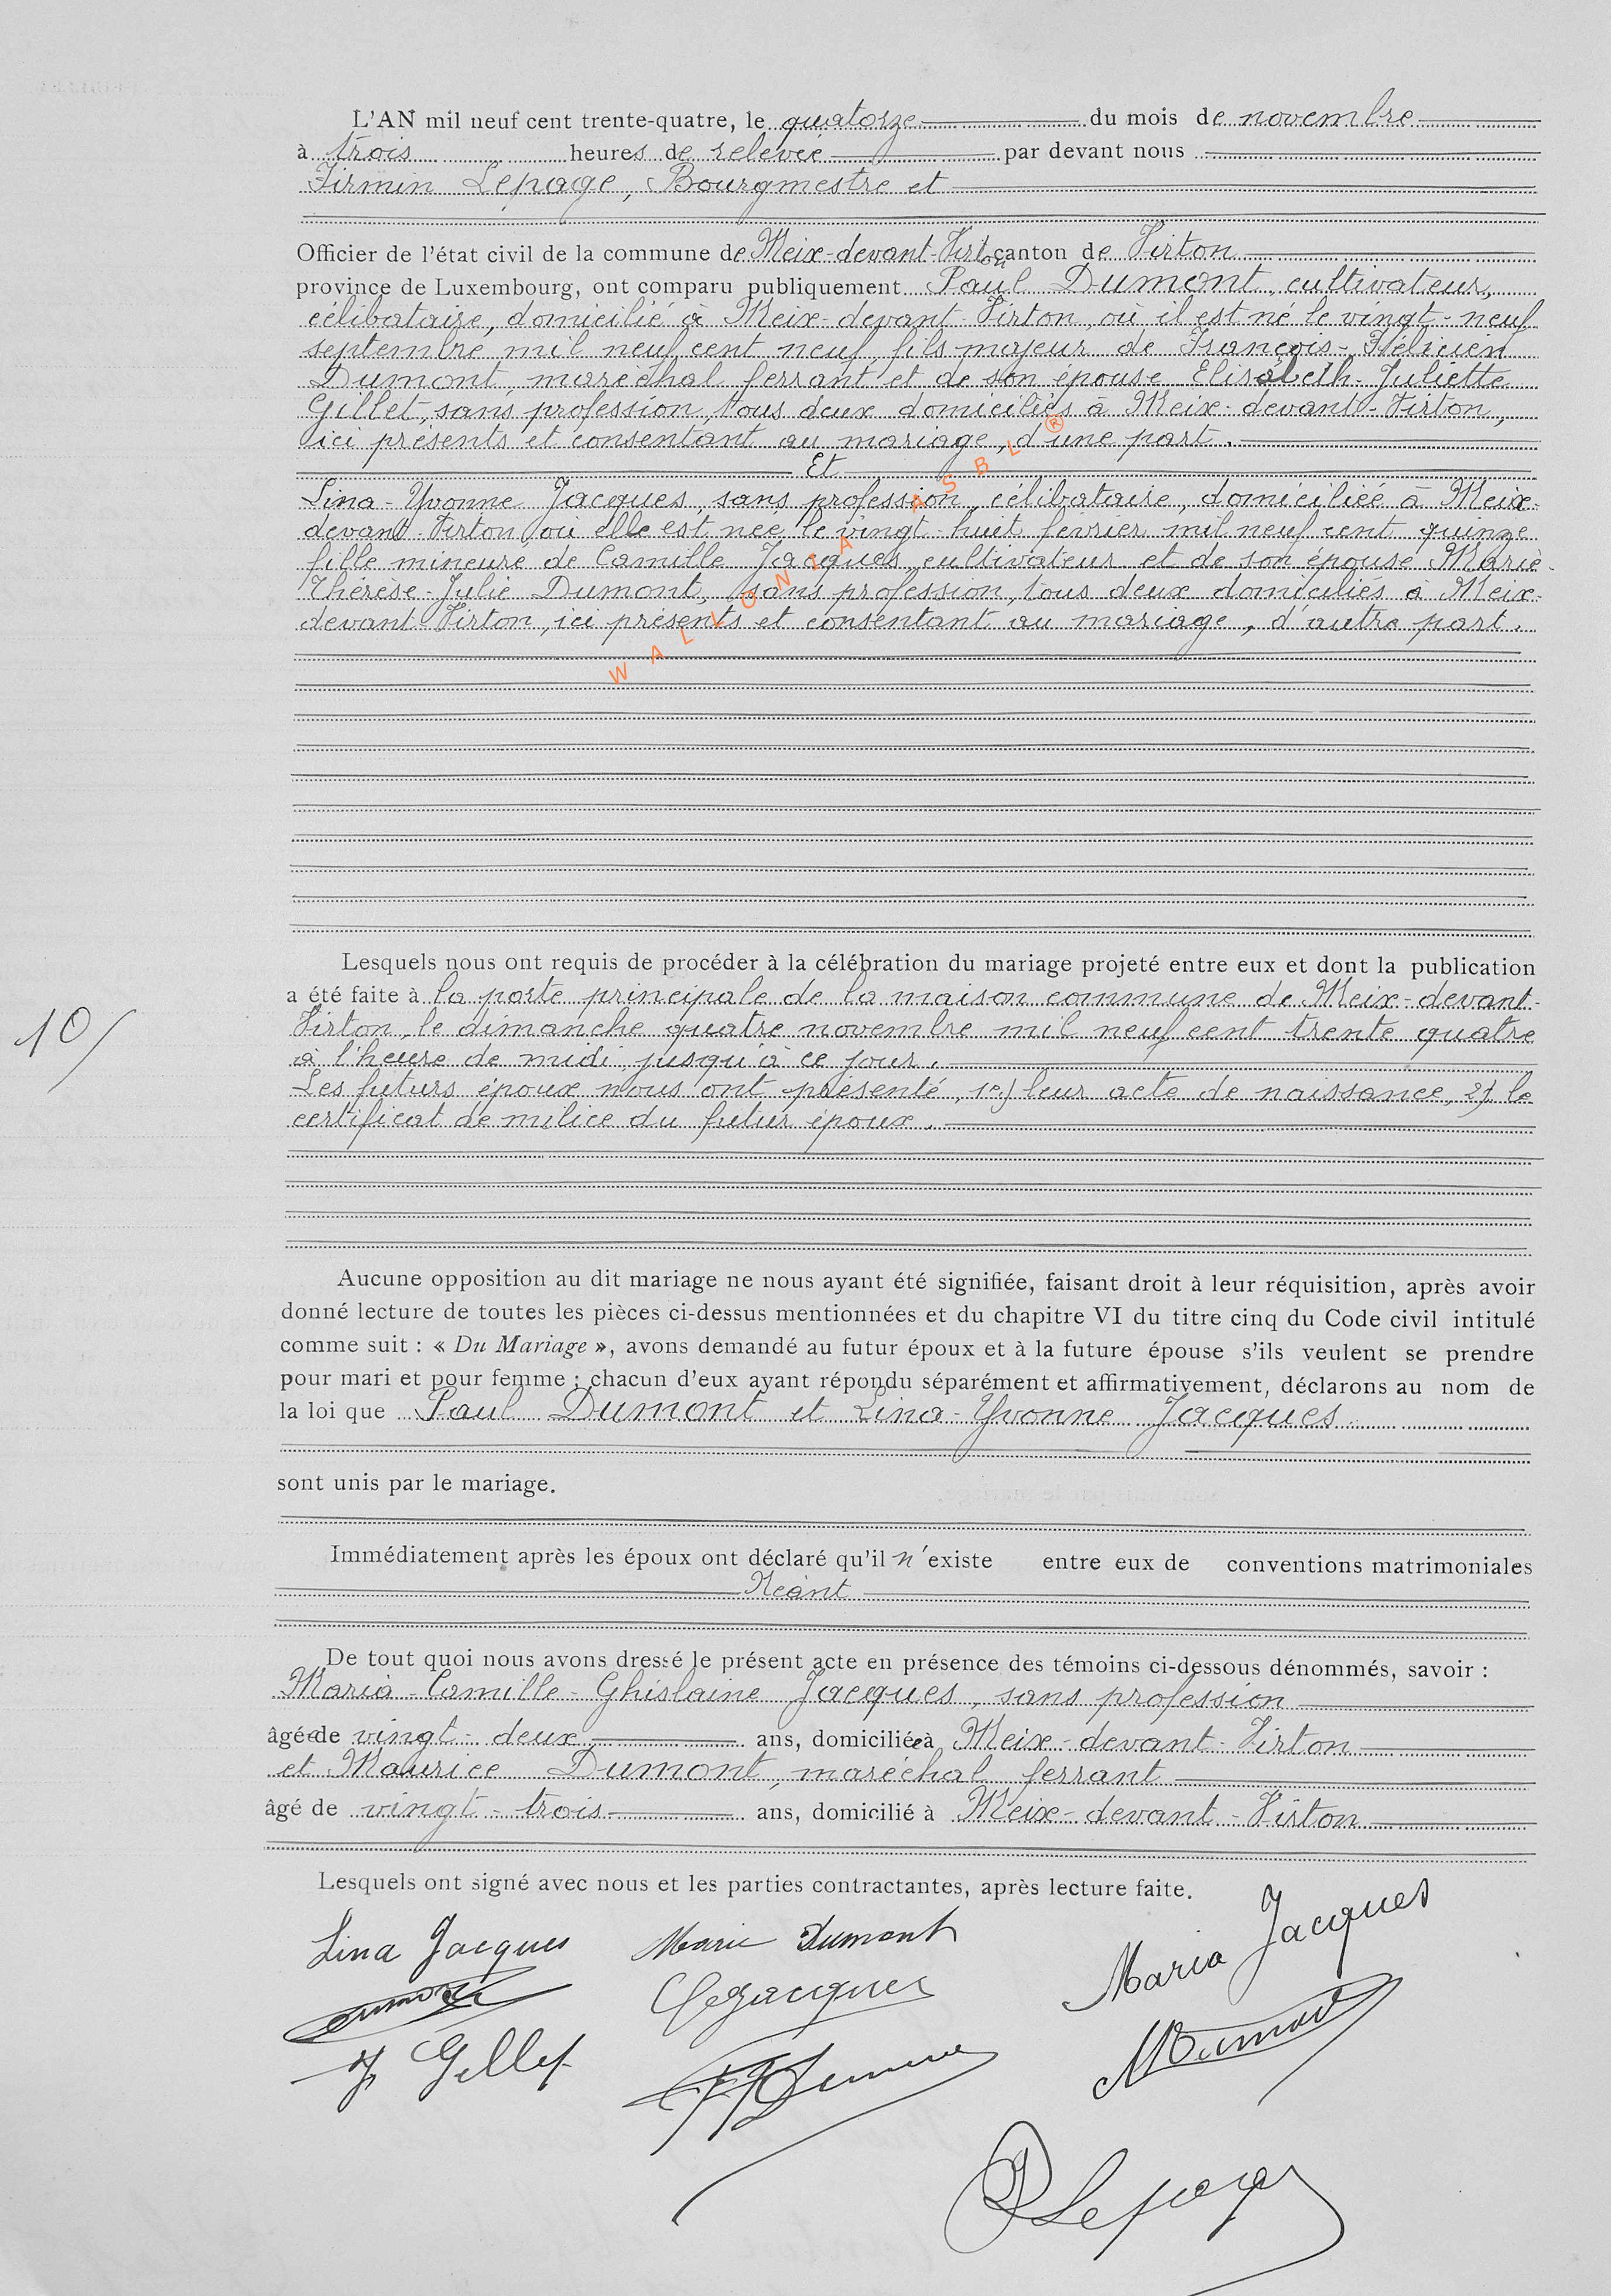 L'AN mil neuf cent trente-quatre, le quatorze du mois de novembre
à trois heures de relevée par devant nous
Firmin Lepage, Bourgmestre et
Officier de l'état civil de la commune de Meix-devant-Virton canton de Virton
province de Luxembourg, ont comparu publiquement Paul Dumont, cultivateur,
célibataire, domicilié à Meix-devant-Virton, où il est né le vingt-neuf
septembre mil neuf cent neuf, fils majeur de François-Félicien
Dumont, maréchal ferrant et de son épouse Elisabeth-Juliette
Gillet, sans profession, tous deux domiciliés à Meix-devant-Virton,
ici présents et consentant au mariage, d'une part.
Et
Lina-Yvonne Jacques, sans profession, célibataire, domiciliée à Meix-
devant-Virton où elle est née le vingt-huit fevrier mil neuf cent quinze
fille mineure de Camille Jacques, cultivateur et de son épouse Marie-
Thérèse-Julie Dumont, sans profession, tous deux domiciliés à Meix-
devant-Virton, ici présents et consentant au mariage, d'autre part.
WALLONIA ASBL ®
Lesquels nous ont requis de procéder à la célébration du mariage projeté entre eux et dont la publication
a été faite à la porte principale de la maison commune de Meix-devant-
Virton, le dimanche quatre novembre mil neuf cent trente quatre
à l'heure de midi, jusqu'à ce jour.
10/
Les futurs époux nous ont présenté, 1e) leur acte de naissance, 2) le
certificat de milice du futur époux.
Aucune opposition au dit mariage ne nous ayant été signifiée, faisant droit à leur réquisition, après avoir
donné lecture de toutes les pièces ci-dessus mentionnées et du chapitre VI du titre cinq du Code civil intitulé
comme suit : « Du Mariage », avons demandé au futur époux et à la future épouse s'ils veulent se prendre
pour mari et pour femme ; chacun d'eux ayant répondu séparément et affirmativement, déclarons au nom de
la loi que Paul Dumont et Lina-Yvonne Jacques
sont unis par le mariage.
Immédiatement après les époux ont déclaré qu'il n'existe entre eux de conventions matrimoniales
Néant
De tout quoi nous avons dressé le présent acte en présence des témoins ci-dessous dénommés, savoir :
Maria-Camille-Ghislaine Jacques, sans profession
âgée de vingt-deux ans, domiciliée à Meix-devant-Virton
et Maurice Dumont, maréchal ferrant
âgé de vingt-trois ans, domicilié à Meix-devant-Virton
Lesquels ont signé avec nous et les parties contractantes, après lecture faite.
Lina Jacques Marie Dumont Maria Jacques
Dumont C Jacques MDumont
J Gillet FDumont
FLepage